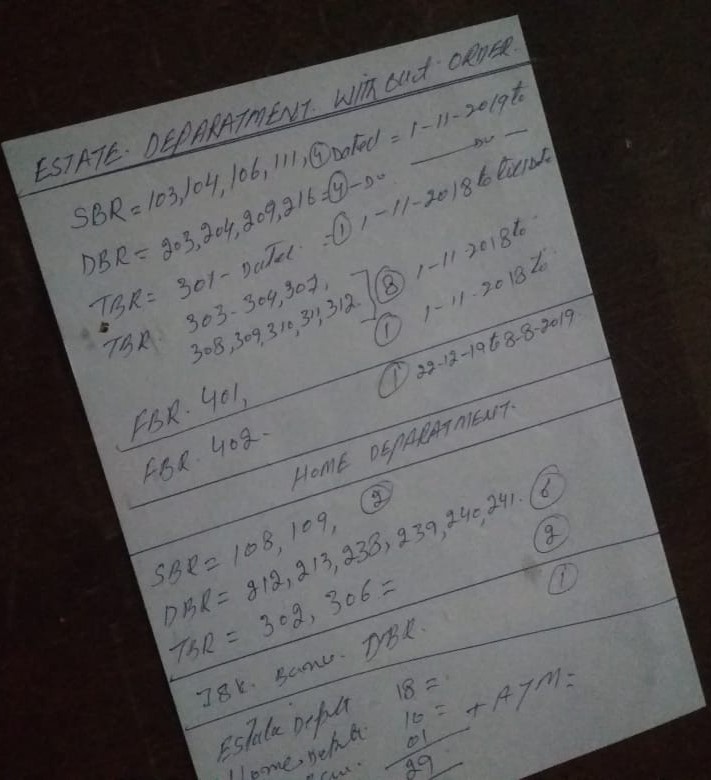 ESTATE. DEPARATMENT. WITHOUT ORDER.
SBR = 103, 104, 106, 111, (4) Dated = 1-11-2019 to
DBR = 203, 204, 209, 216 = (4) - Do. —— Do —
TBR = 301 - Dated. = (1) 1-11-2018 to till date
TBR. 303 - 304, 307,
308, 309, 310, 311, 312. (8) 1-11-2018 to
FBR. 401, (1) 1-11-2018 to
FBR. 402 - (1) 22-12-19 to 8-8-2019.
HOME DEPARATMENT.
SBR = 108, 109, (2)
DBR = 212, 213, 238, 239, 240, 241. (6)
TBR = 302, 306 = (2)
J&K. Bank. DBR. (1)
Estate Deptt 18 =
Home Deptt. 10 =
01 + ATM =
29